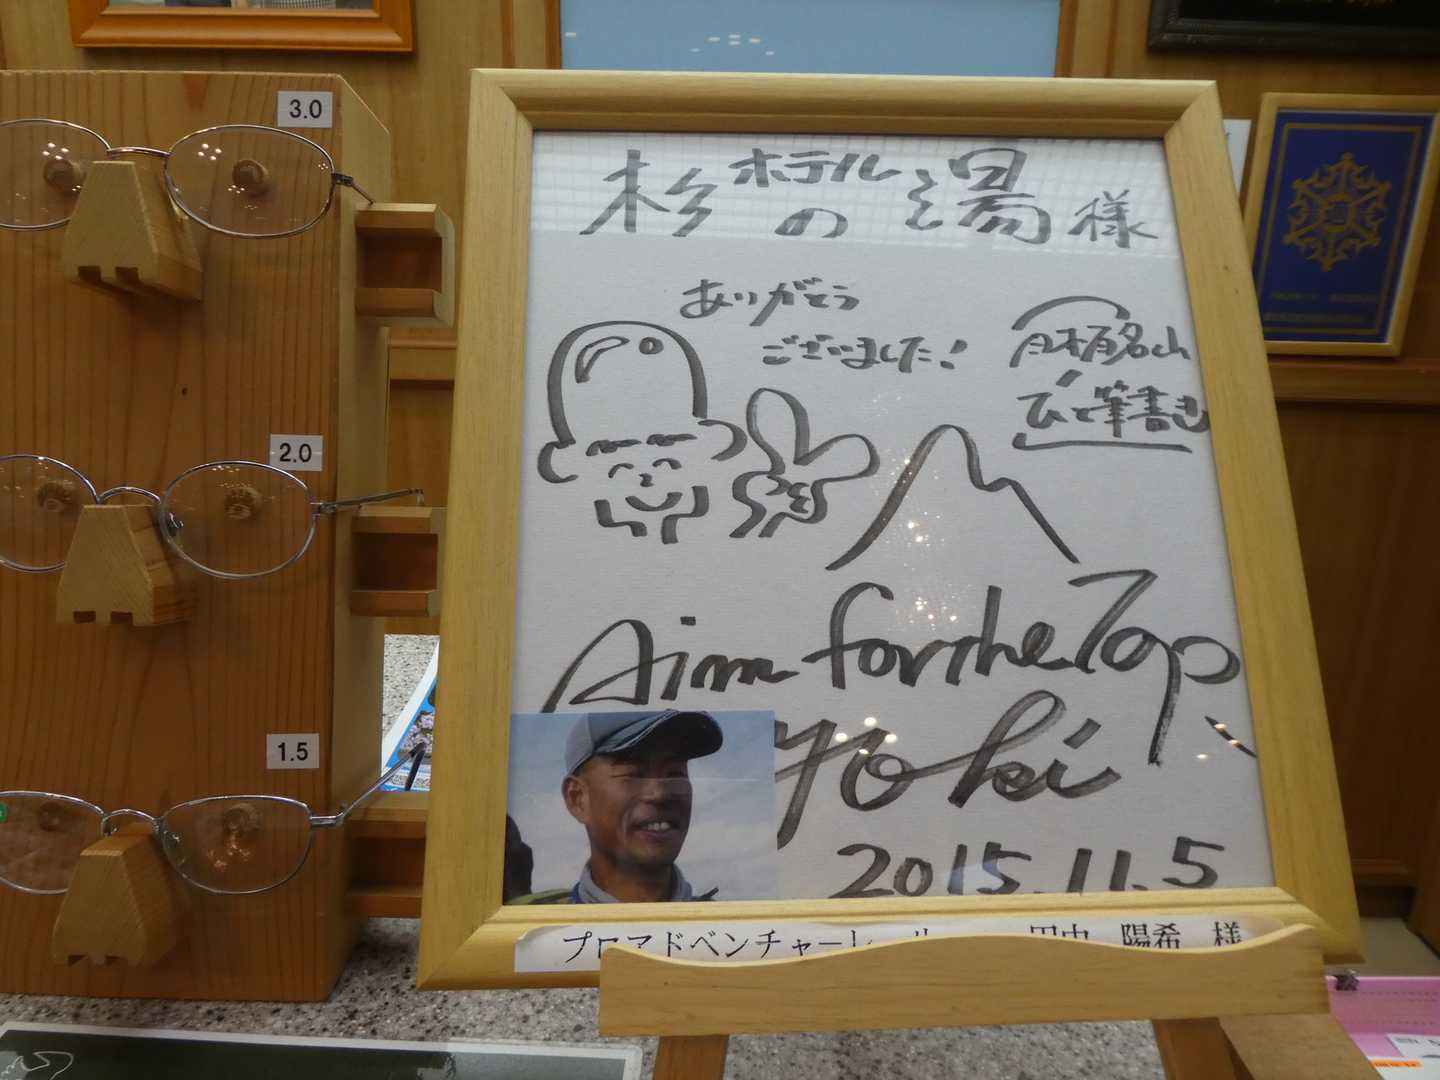 3.0
2.0
1.5
杉ホテルの湯様
ありがとう
ございました!
百名山
ひと筆書き
Aim for the Top
yoki
2015.11.5
プロアドベンチャーレーサー 田中 陽希 様